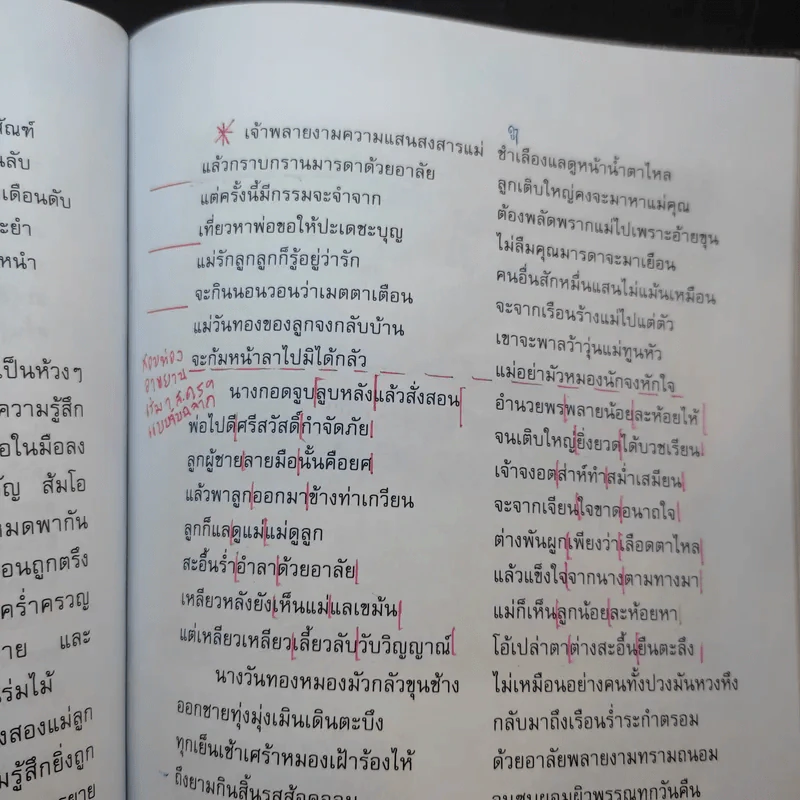 ัณฑ์
นลับ
เดือนดับ
ะยำ
หนำ
เป็นห้วงๆ
ความรู้สึก
อในมือลง
ัญ ส้มโอ
หมดพากัน
อนถูกตรึง
คร่ำครวญ
าย และ
นร่มไม้
งสองแม่ลูก
มรู้สึกยิ่งถูก
เจ้าพลายงามความแสนสงสารแม่ ชำเลืองแลดูหน้าน้ำตาไหล
แล้วกราบกรานมารดาด้วยอาลัย ลูกเติบใหญ่คงจะมาหาแม่คุณ
แต่ครั้งนี้มีกรรมจะจำจาก ต้องพลัดพรากแม่ไปเพราะอ้ายขุน
เที่ยวหาพ่อขอให้ปะเดชะบุญ ไม่ลืมคุณมารดาจะมาเยือน
แม่รักลูกลูกก็รู้อยู่ว่ารัก คนอื่นสักหมื่นแสนไม่แม้นเหมือน
จะกินนอนวอนว่าเมตตาเตือน จะจากเรือนร้างแม่ไปแต่ตัว
แม่วันทองของลูกจงกลับบ้าน เขาจะพาลว้าวุ่นแม่ทูนหัว
จะก้มหน้าลาไปมิได้กลัว แม่อย่ามัวหมองนักจงหักใจ
นางกอดจูบลูบหลังแล้วสั่งสอน อำนวยพรพลายน้อยละห้อยไห้
พ่อไปดีศรีสวัสดิ์กำจัดภัย จนเติบใหญ่ยิ่งยวดได้บวชเรียน
ลูกผู้ชายลายมือนั้นคือยศ เจ้าจงอตส่าห์ทำสม่ำเสมียน
แล้วพาลูกออกมาข้างท่าเกวียน จะจากเจียนใจขาดอนาถใจ
ลูกก็แลดูแม่แม่ดูลูก ต่างพันผูกเพียงว่าเลือดตาไหล
สะอื้นร่ำอำลาด้วยอาลัย แล้วแข็งใจจากนางตามทางมา
เหลียวหลังยังเห็นแม่แลเขม้น แม่ก็เห็นลูกน้อยละห้อยหา
แต่เหลียวเหลียวเลี้ยวลับวับวิญญาณ์ โอ้เปล่าตาต่างสะอื้นยืนตะลึง
นางวันทองหมองมัวกลัวขุนช้าง ไม่เหมือนอย่างคนทั้งปวงมันหวงหึง
ออกชายทุ่งมุ่งเมินเดินตะบึง กลับมาถึงเรือนร่ำระกำตรอม
ทุกเย็นเช้าเศร้าหมองเฝ้าร้องไห้ ด้วยอาลัยพลายงามทรามถนอม
ถึงยามกินสิ้นรส